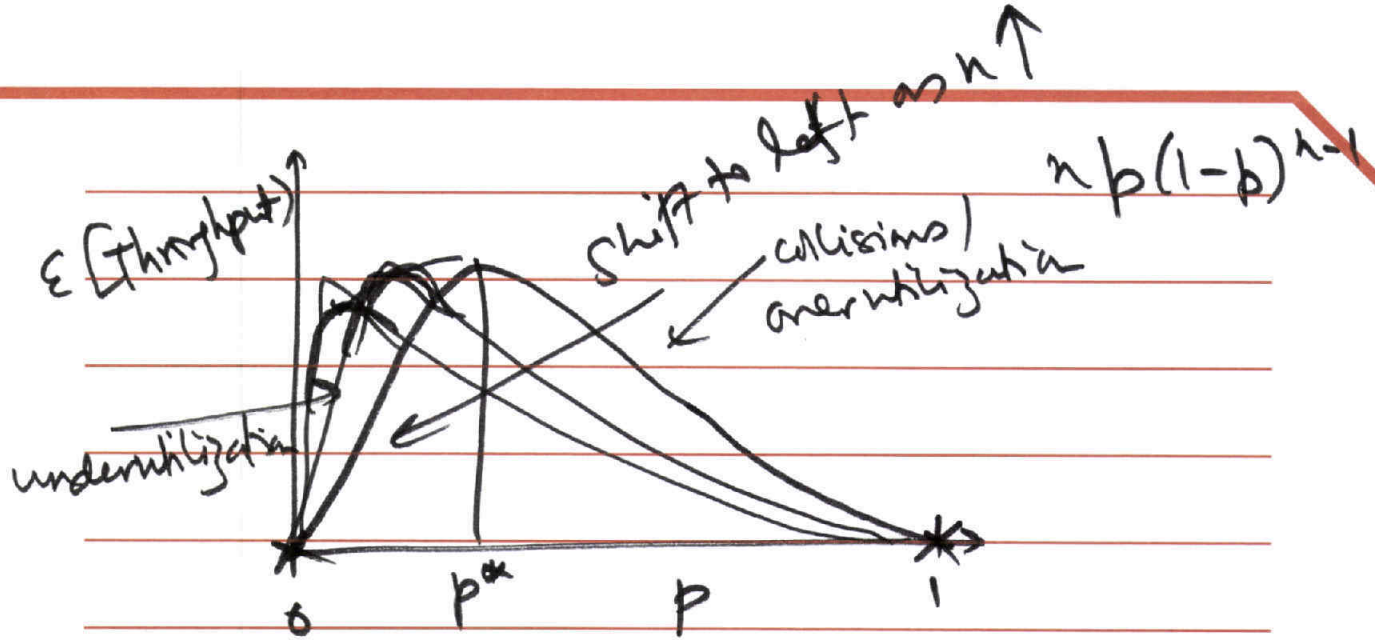 shift to left as n ↑
n p(1-p)^{n-1}
E[Throughput)
collisions/
overutilization
underutilization
0
p*
p
1